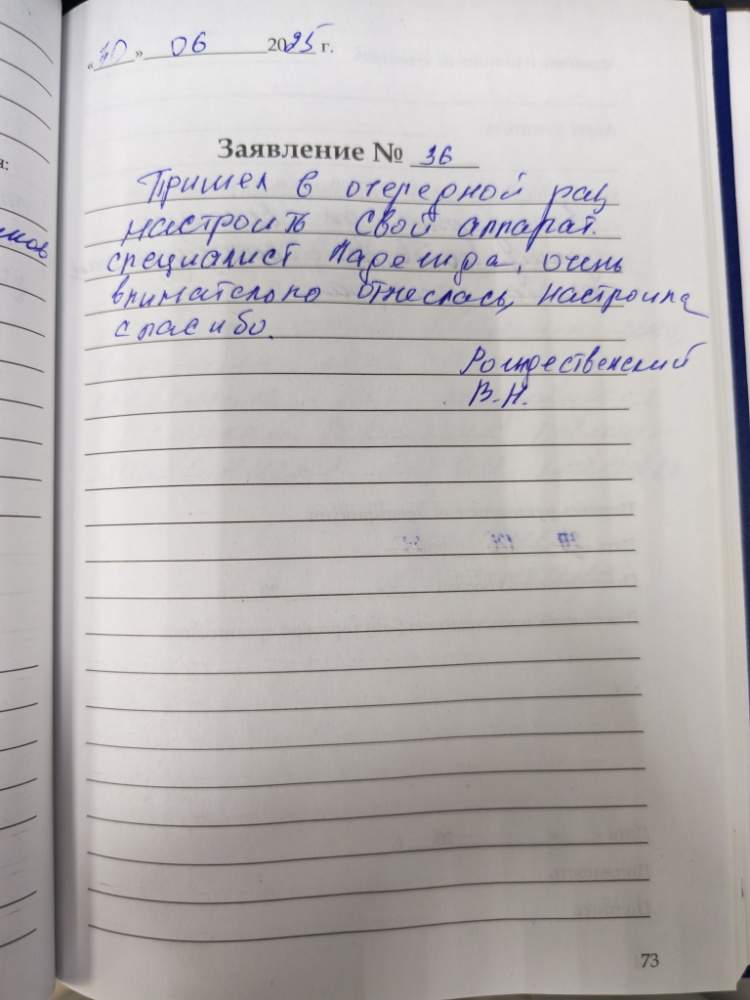 «30» 06 2025 г.
Заявление № 36
Пришел в очередной раз
настроить свой аппарат.
специалист очень
внимательно отнеслась, настроила
спасибо.
Рождественский
В.Н.
73